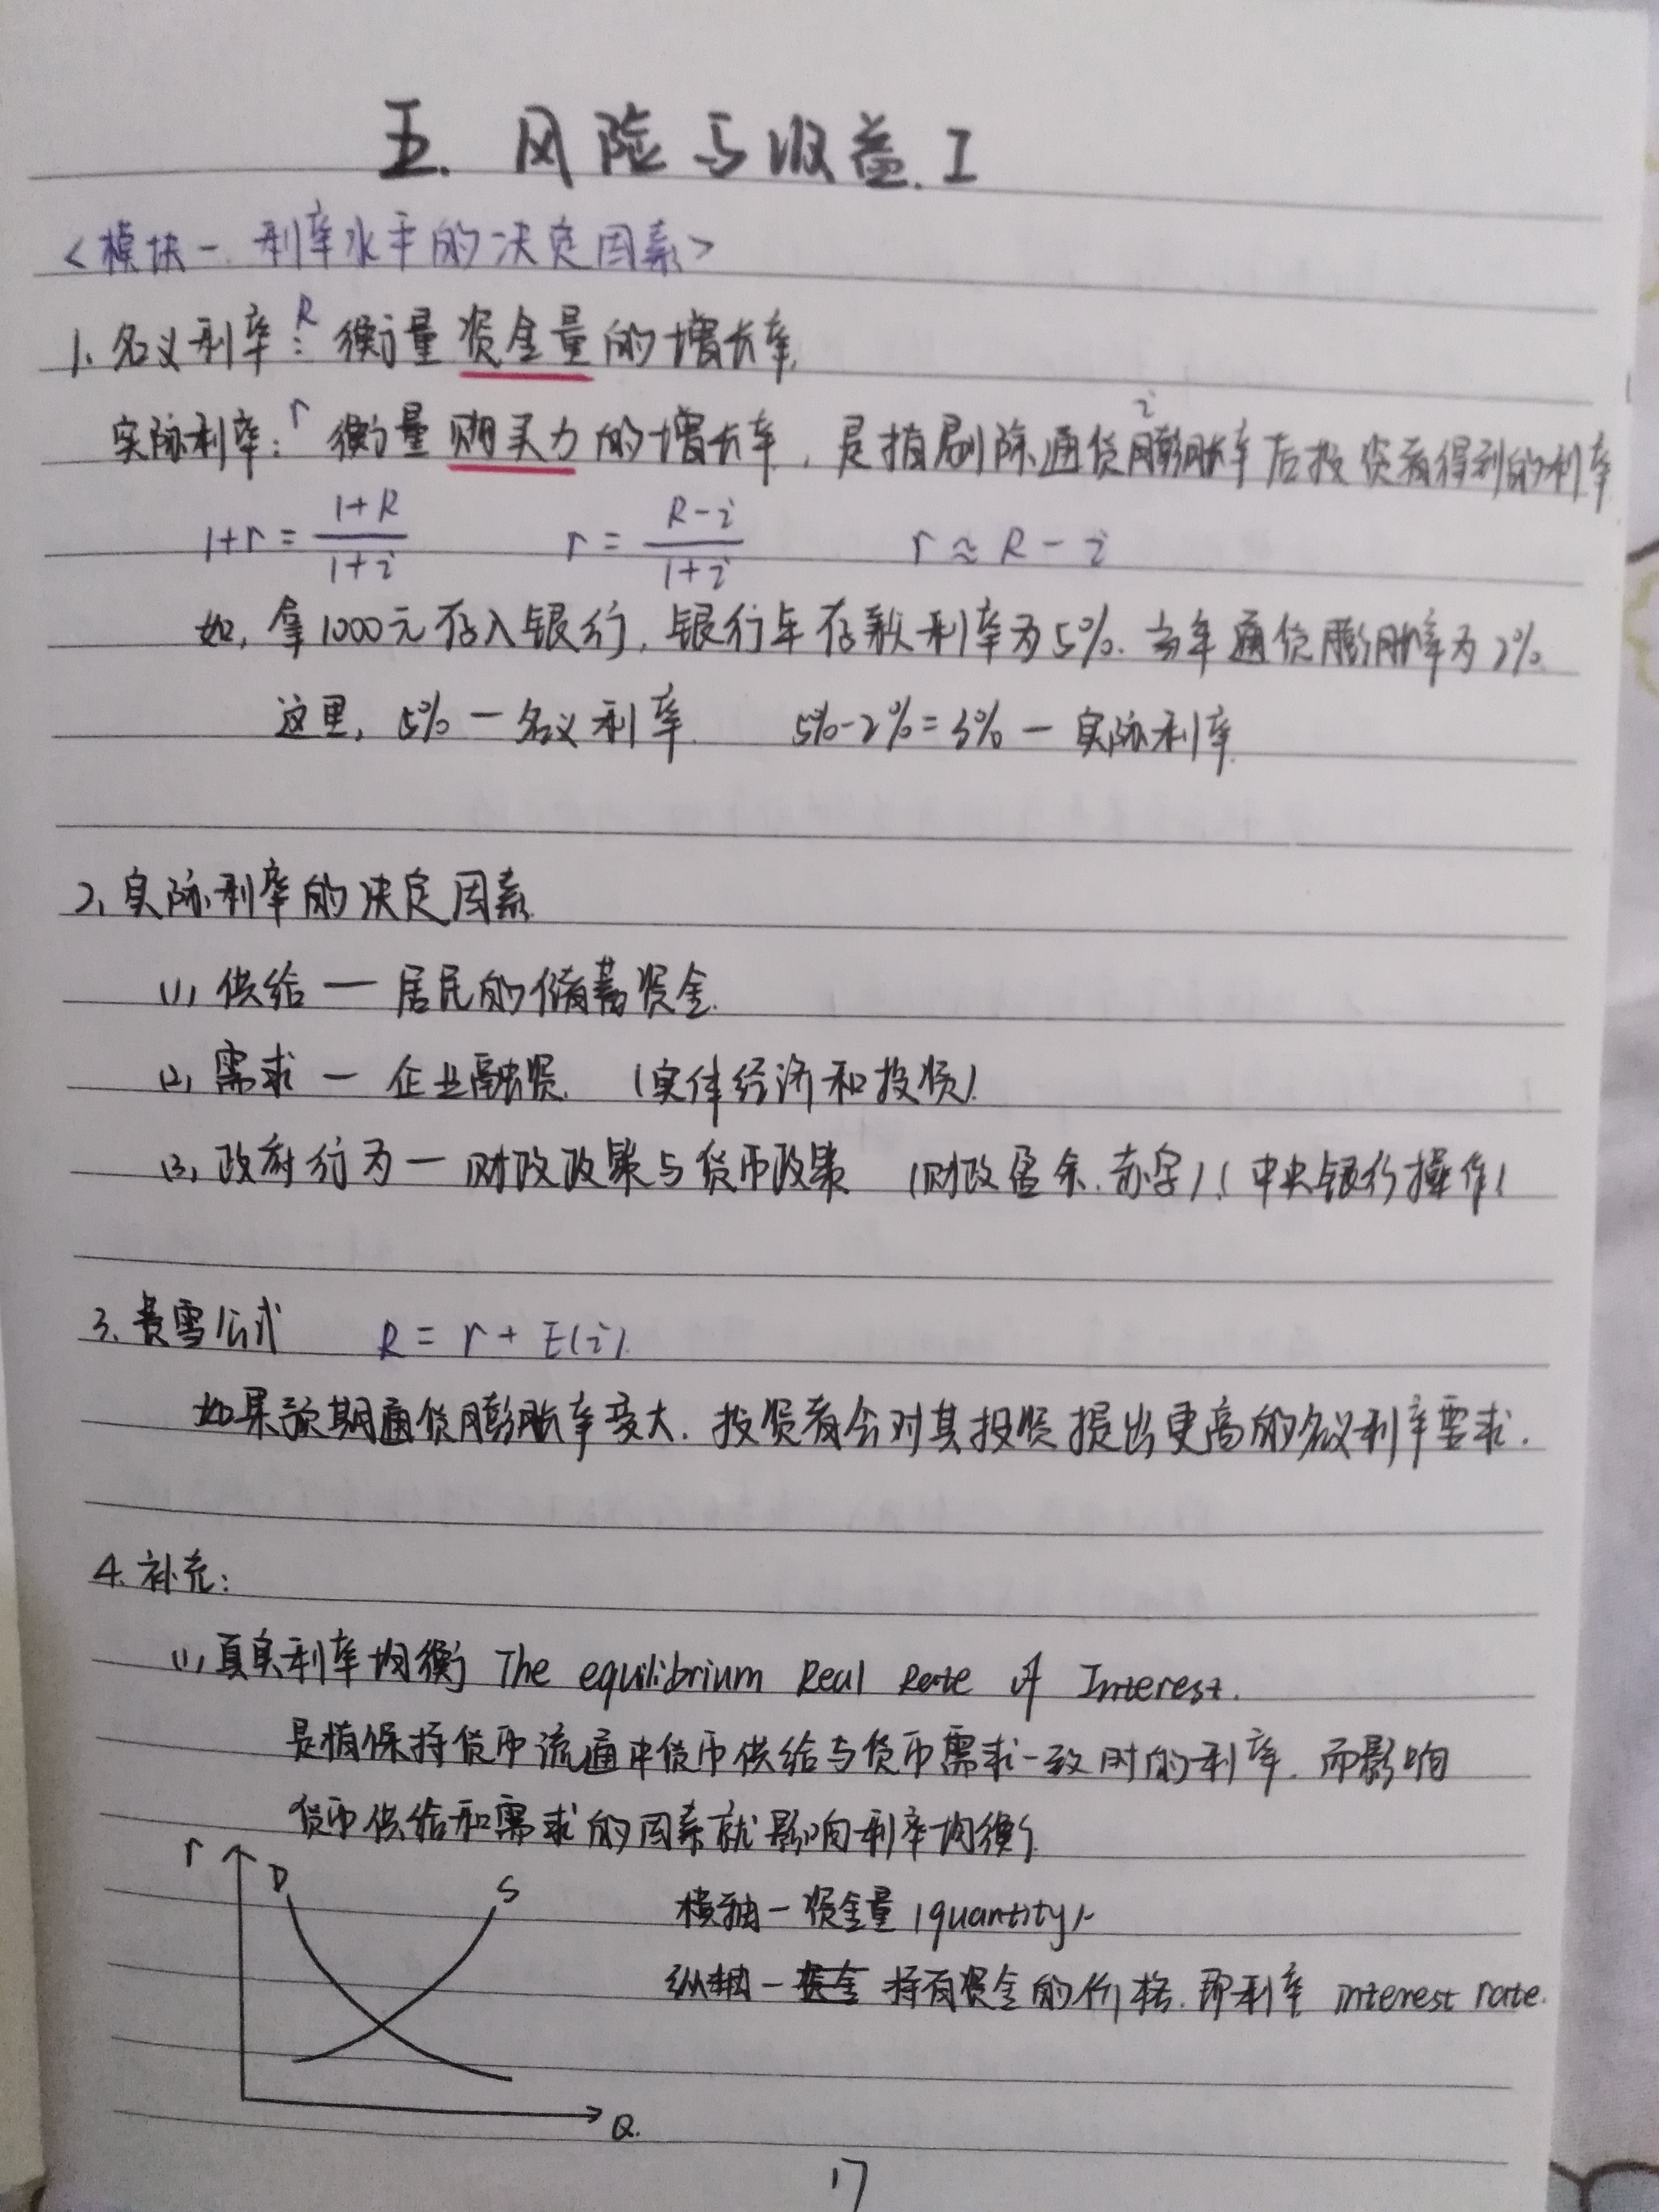 五. 风险与收益. I
<模块一. 利率水平的决定因素>
1. 名义利率: R 衡量资金量的增长率.
实际利率: r 衡量购买力的增长率, 是指剔除通货膨胀率 i 后投资者得到的利率
1+r = (1+R)/(1+i)  r = (R-i)/(1+i)  r ≈ R - i
如, 拿1000元存入银行, 银行年存款利率为5%. 当年通货膨胀率为2%.
这里, 5% — 名义利率. 5%-2%=3% — 实际利率.
2. 实际利率的决定因素.
(1) 供给 — 居民的储蓄资金.
(2) 需求 — 企业融资. (实体经济和投资)
(3) 政府行为 — 财政政策与货币政策 (财政盈余.赤字) (中央银行操作)
3. 费雪公式 R = r + E(i).
如果预期通货膨胀率变大. 投资者会对其投资提出更高的名义利率要求.
4. 补充:
(1) 真实利率均衡 The equilibrium Real Rate of Interest.
是指保持货币流通中货币供给与货币需求一致时的利率. 而影响
货币供给和需求的因素就影响利率均衡.
r D S
横轴 — 资金量 (quantity).
纵轴 — 持有资金的价格. 即利率 interest rate.
Q.
17